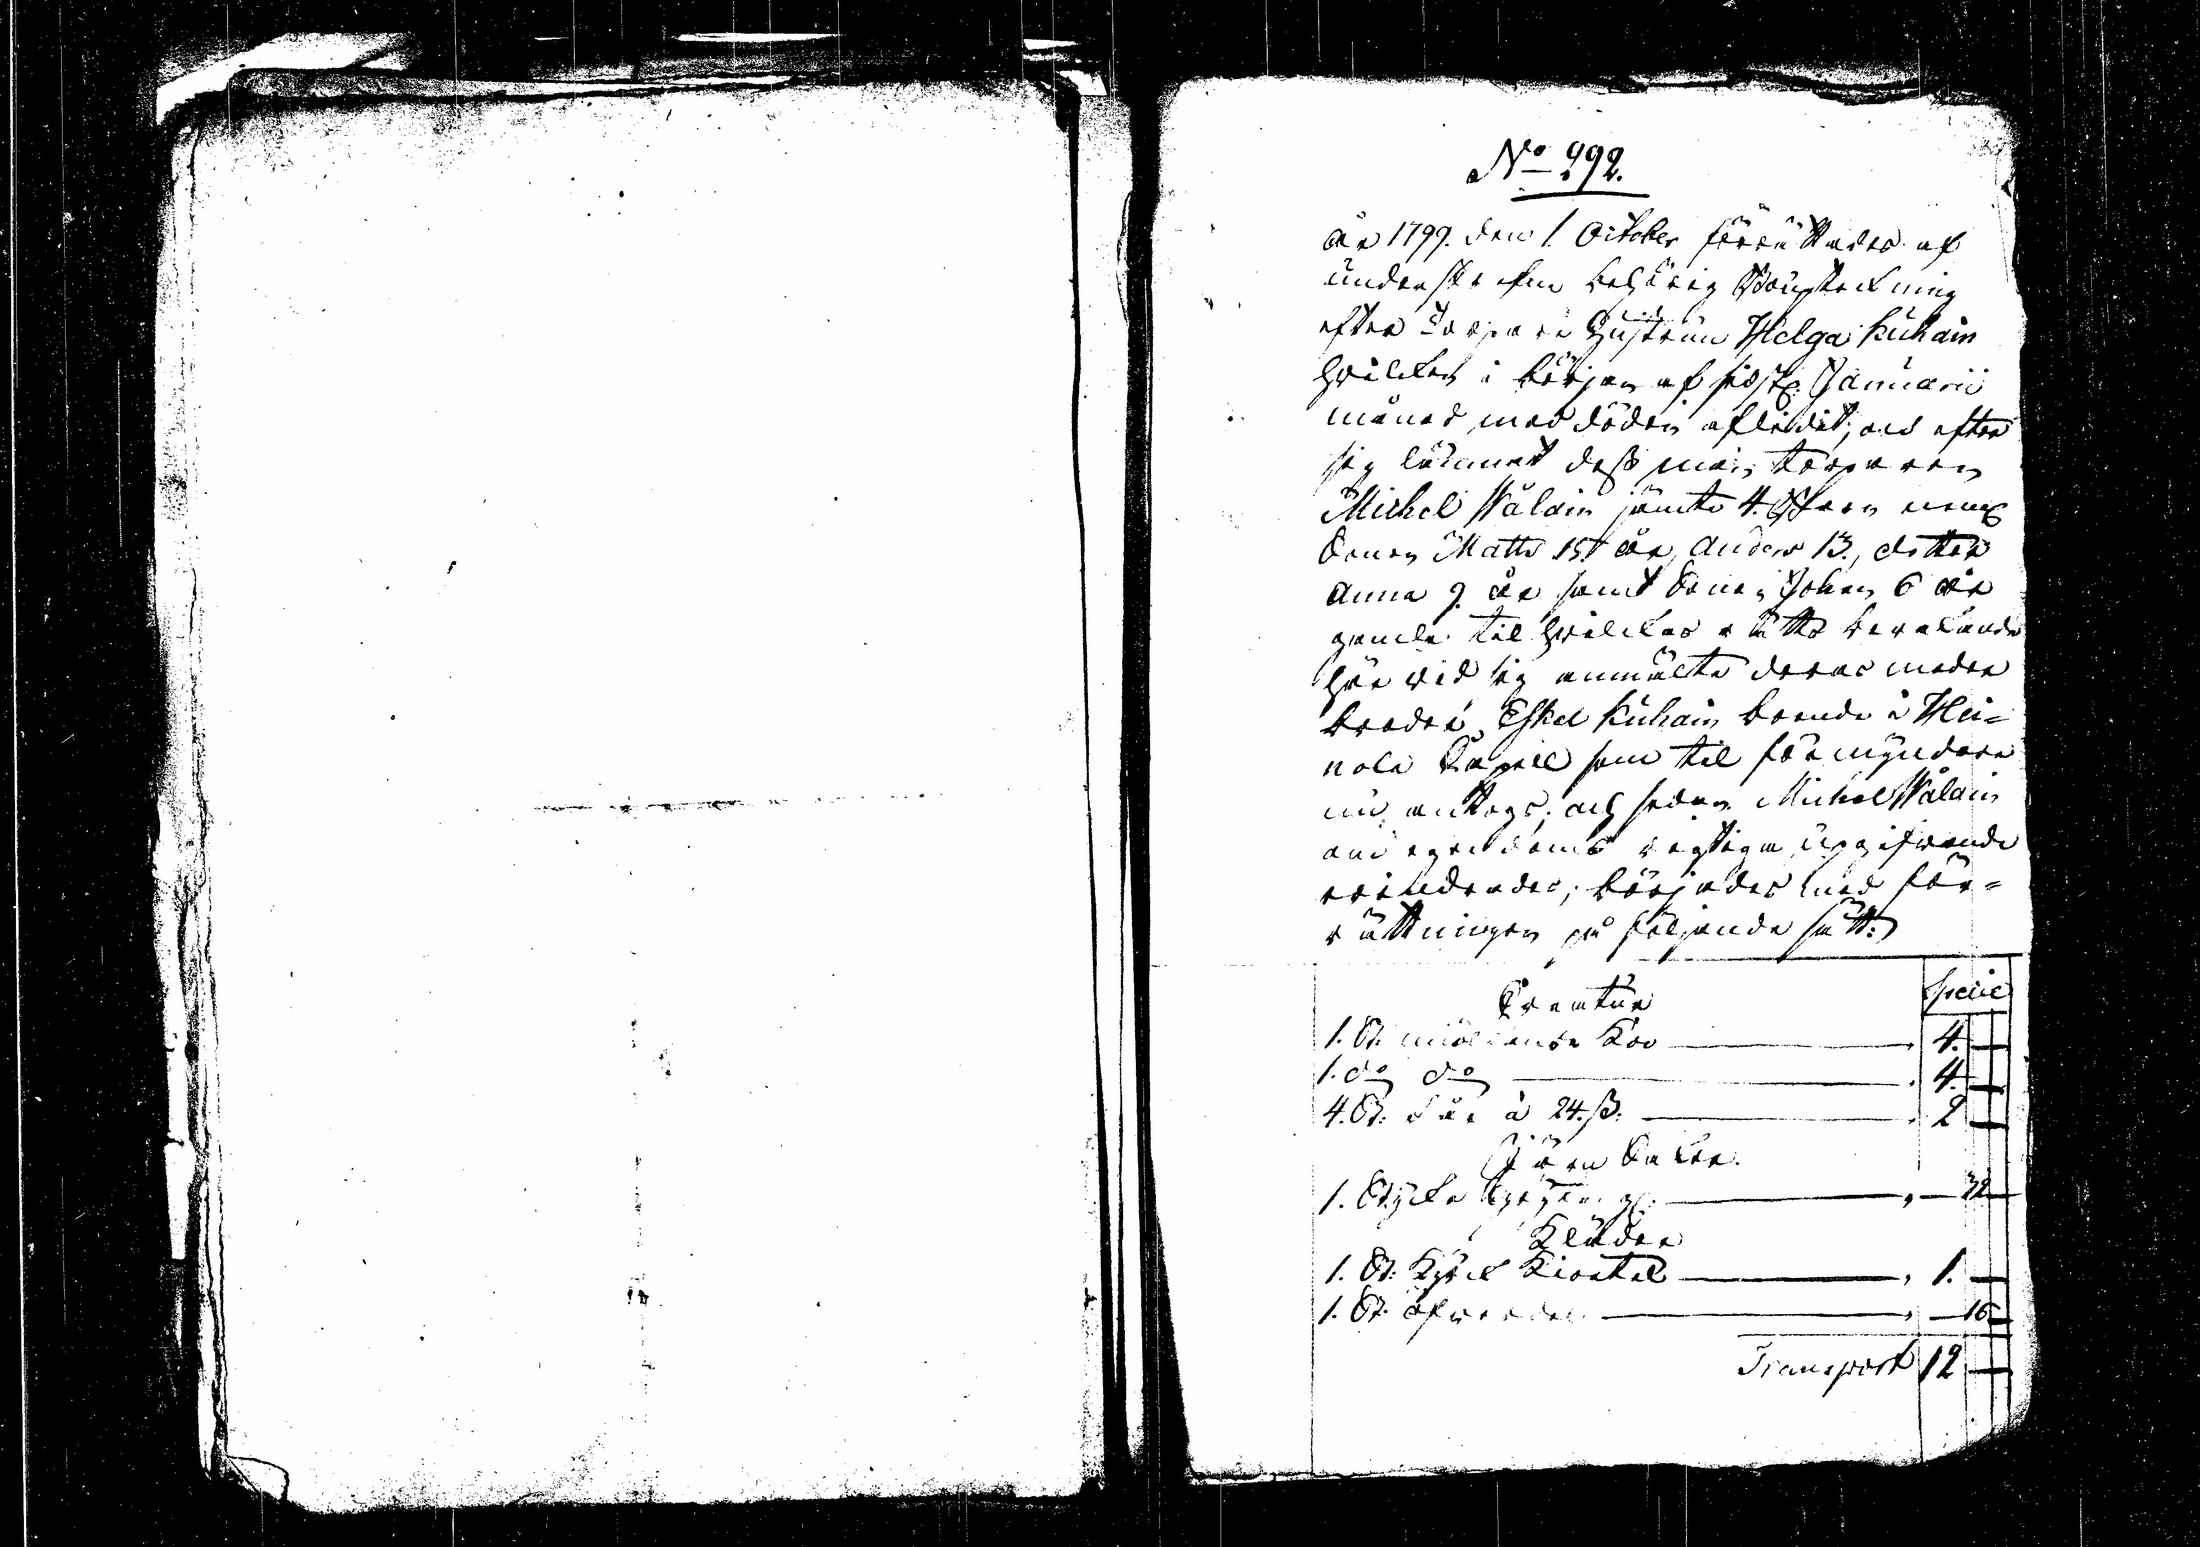 No 292.
År 1799. den 1. October förrättades af
underskrefne behörig Bouptekning
efter Torpare Hustrun Helga Kuhain
hvilken i början af sidstl. Januarii
månad med döden aflidit, och efter
sig lämnat dess man torparen
Michel Wålain jämte 4. Barn neml
Sonen Matts 15 år, Anders 13., dotter
Anna 9. år samt Sonen Johan 6 år
gamla. til hvilkas rätts bevakande
här vid sig anmälte deras moder
broder Eskel Kuhain boende i Hei=
nola Capell som til förmyndare
nu antogs; och sedan Michel Wålain
om egendoms rigtiga uppgifvande
erindrades, börjades med för=
rättningen på följande sätt:
Specie
Creatur
1. St. miölkande Ko 4. —
1. do do 4. —
4. St. Får à 24. ß. 2 —
Järn Saker.
1. Stycke — 32
Kläder
1. St. Kyrck Kiortel 1. —
1. St. — 16
Transport 12 —